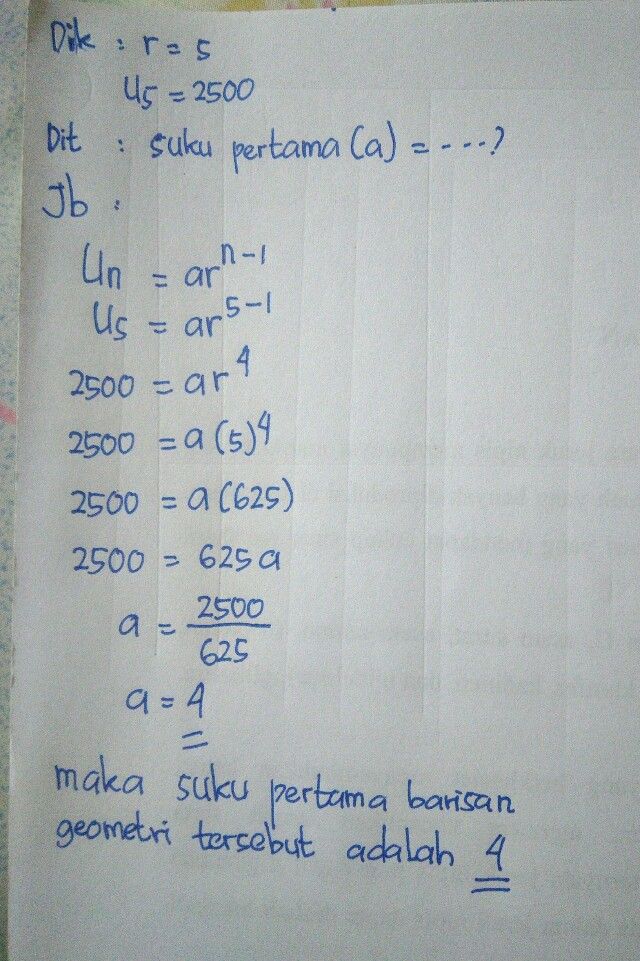 Dik : r = 5
U5 = 2500
Dit : suku pertama (a) = ----?
Jb :
Un = ar^n-1
U5 = ar^5-1
2500 = ar^4
2500 = a(5)^4
2500 = a(625)
2500 = 625a
a = 2500/625
a = 4
maka suku pertama barisan
geometri tersebut adalah 4